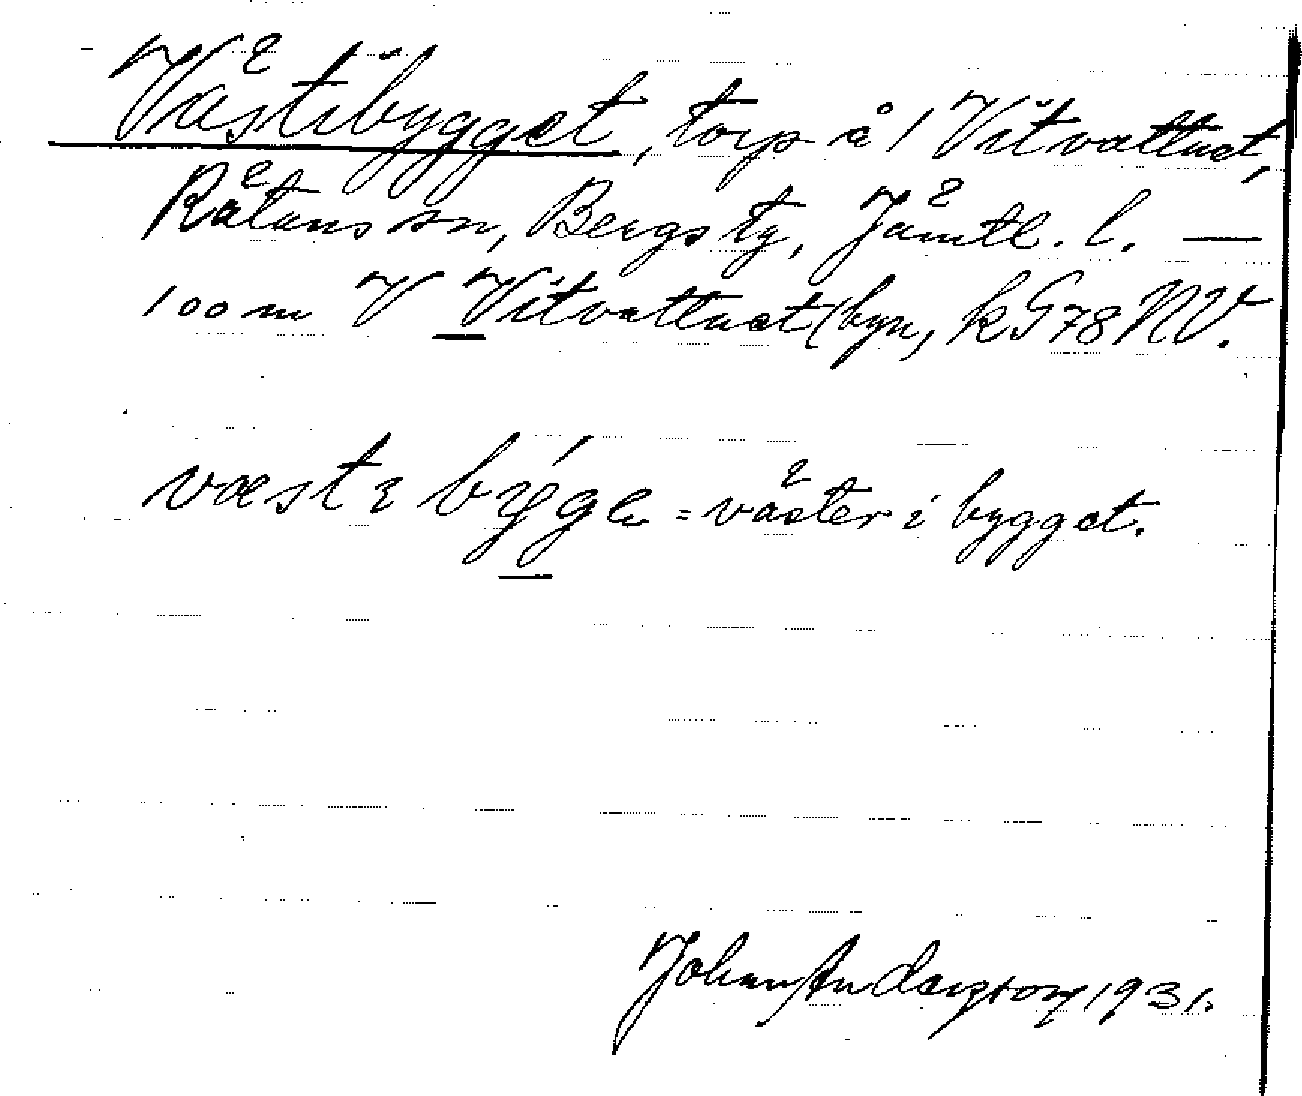 Västibygget, torp å 1 Vitvattnet,
Rätans sn, Bergs tg, Jämtl. l. —
100 m V Vitvattnet (byn, kG78NV.
väst i býgẹ = väster i bygget.
Johan Anderzson 1931.